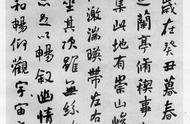 歲在癸丑暮春
之蘭亭修禊事
集此地有崇山峻
激湍暎帶左右
坐其次雖無絲
足以暢叙幽情
和暢仰觀宇宙